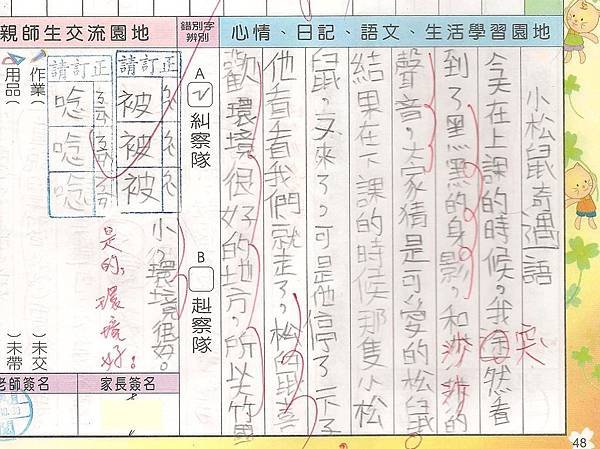 心情、日記、語文、生活學習園地
小松鼠奇遇語
今天在上課的時候。我然看
突
到了黑黑的身影,和沙沙的
聲音,大家猜是可愛的松鼠。
結果在下課的時候那隻小松
鼠,又來了,可是他停了一下子
他看看我們就走了,松鼠喜
歡環境很好的地方,所以竹國
小,環境很好。
錯別字辨別
A 糾察隊
B 赳察隊
親師生交流園地
請訂正
被
被
被
請訂正
唸
唸
唸
是的,環境好!
作業( )未交
用品( )未帶
家長簽名
老師簽名
48